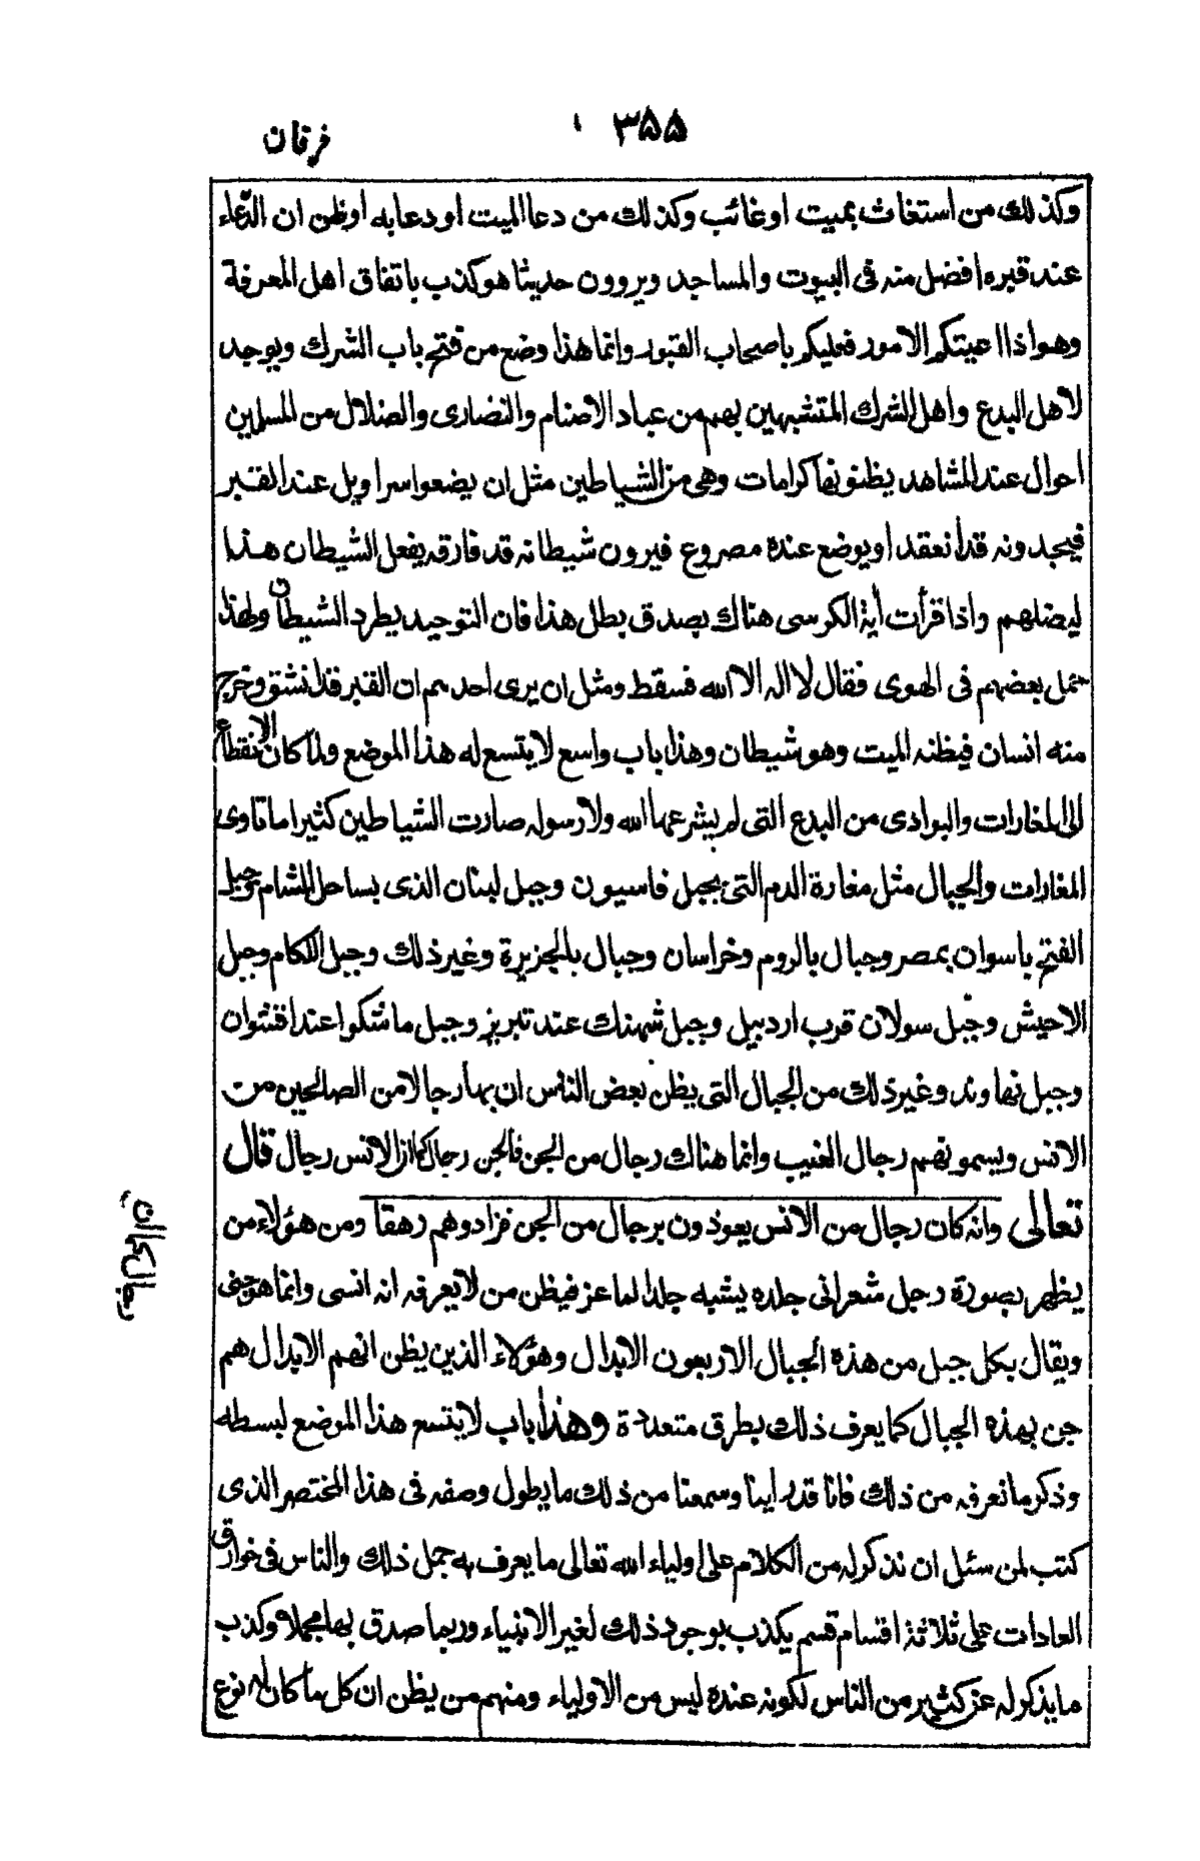 فرقان
٣٥٥
وكذلك من استغاث بميت او غائب وكذلك من دعا الميت او دعا به او ظن ان الدّعاء
عند قبره افضل منه فى البيوت والمساجد ويروون حديثا هو كذب باتفاق اهل المعرفة
وهو اذا اعيتكم الامور فعليكم باصحاب القبور وانما هذا وضع من فتح باب الشرك ويوجد
لاهل البدع واهل الشرك المتشبهين بهم من عباد الاصنام والنصارى والضلال من المسلمين
احوال عند المشاهد يظنونها كرامات وهى من الشياطين مثل ان يضعوا سراويل عند القبر
فيجدونه قد انعقد او يوضع عنده مصروع فيرون شيطانه قد فارقه يفعل الشيطان هذا
ليضلهم واذا قرأت أية الكرسى هناك بصدق بطل هذا فان التوحيد يطرد الشيطان ولهذا
حمل بعضهم فى الهوى فقال لا اله الا الله فسقط ومثل ان يرى احدهم ان القبر قد انشق وخرج
منه انسان فيظنه الميت وهو شيطان وهذا باب واسع لا يتسع له هذا الموضع ولما كان الانقطاع
الى المغارات والبوادى من البدع التى لم يشرعها الله ولا رسوله صارت الشياطين كثيرا ما تاوى
المغارات والجبال مثل مغارة الدم التى بجبل قاسيون وجبل لبنان الذى بساحل الشام وجبل
الفتح باسوان بمصر وجبال بالروم وخراسان وجبال بالجزيرة وغير ذلك وجبل اللكام وجبل
الاحيش وجبل سولان قرب اردبيل وجبل شهنك عند تبريز وجبل ماشكوا عند اقشوان
وجبل نهاوند وغير ذلك من الجبال التى يظن بعض الناس ان بها رجالا من الصالحين من
الانس ويسمونهم رجال الغيب وانما هناك رجال من الجن فالجن رجال كما ان الانس رجال قال
تعالى وانه كان رجال من الانس يعوذون برجال من الجن فزادوهم رهقا ومن هؤلاء من
يظهر بصورة رجل شعرانى جلده يشبه جلد الماعز فيظن من لا يعرفه انه انسى وانما هو جنى
ويقال بكل جبل من هذه الجبال الاربعون الابدال وهؤلاء الذين يظن انهم الابدال هم
جن بهذه الجبال كما يعرف ذلك بطرق متعددة وهذا باب لا يتسع هذا الموضع لبسطه
وذكر ما نعرفه من ذلك فانا قد راينا وسمعنا من ذلك ما يطول وصفه فى هذا المختصر الذى
كتب لمن سئل ان نذكر له من الكلام على اولياء الله تعالى ما يعرف به جمل ذلك والناس فى خوارق
العادات على ثلاثة اقسام قسم يكذب بوجود ذلك لغير الانبياء وربما صدق بها مجملا وكذب
ما يذكر له عن كثير من الناس لكونه عنده ليس من الاولياء ومنهم من يظن ان كل ما كان له نوع